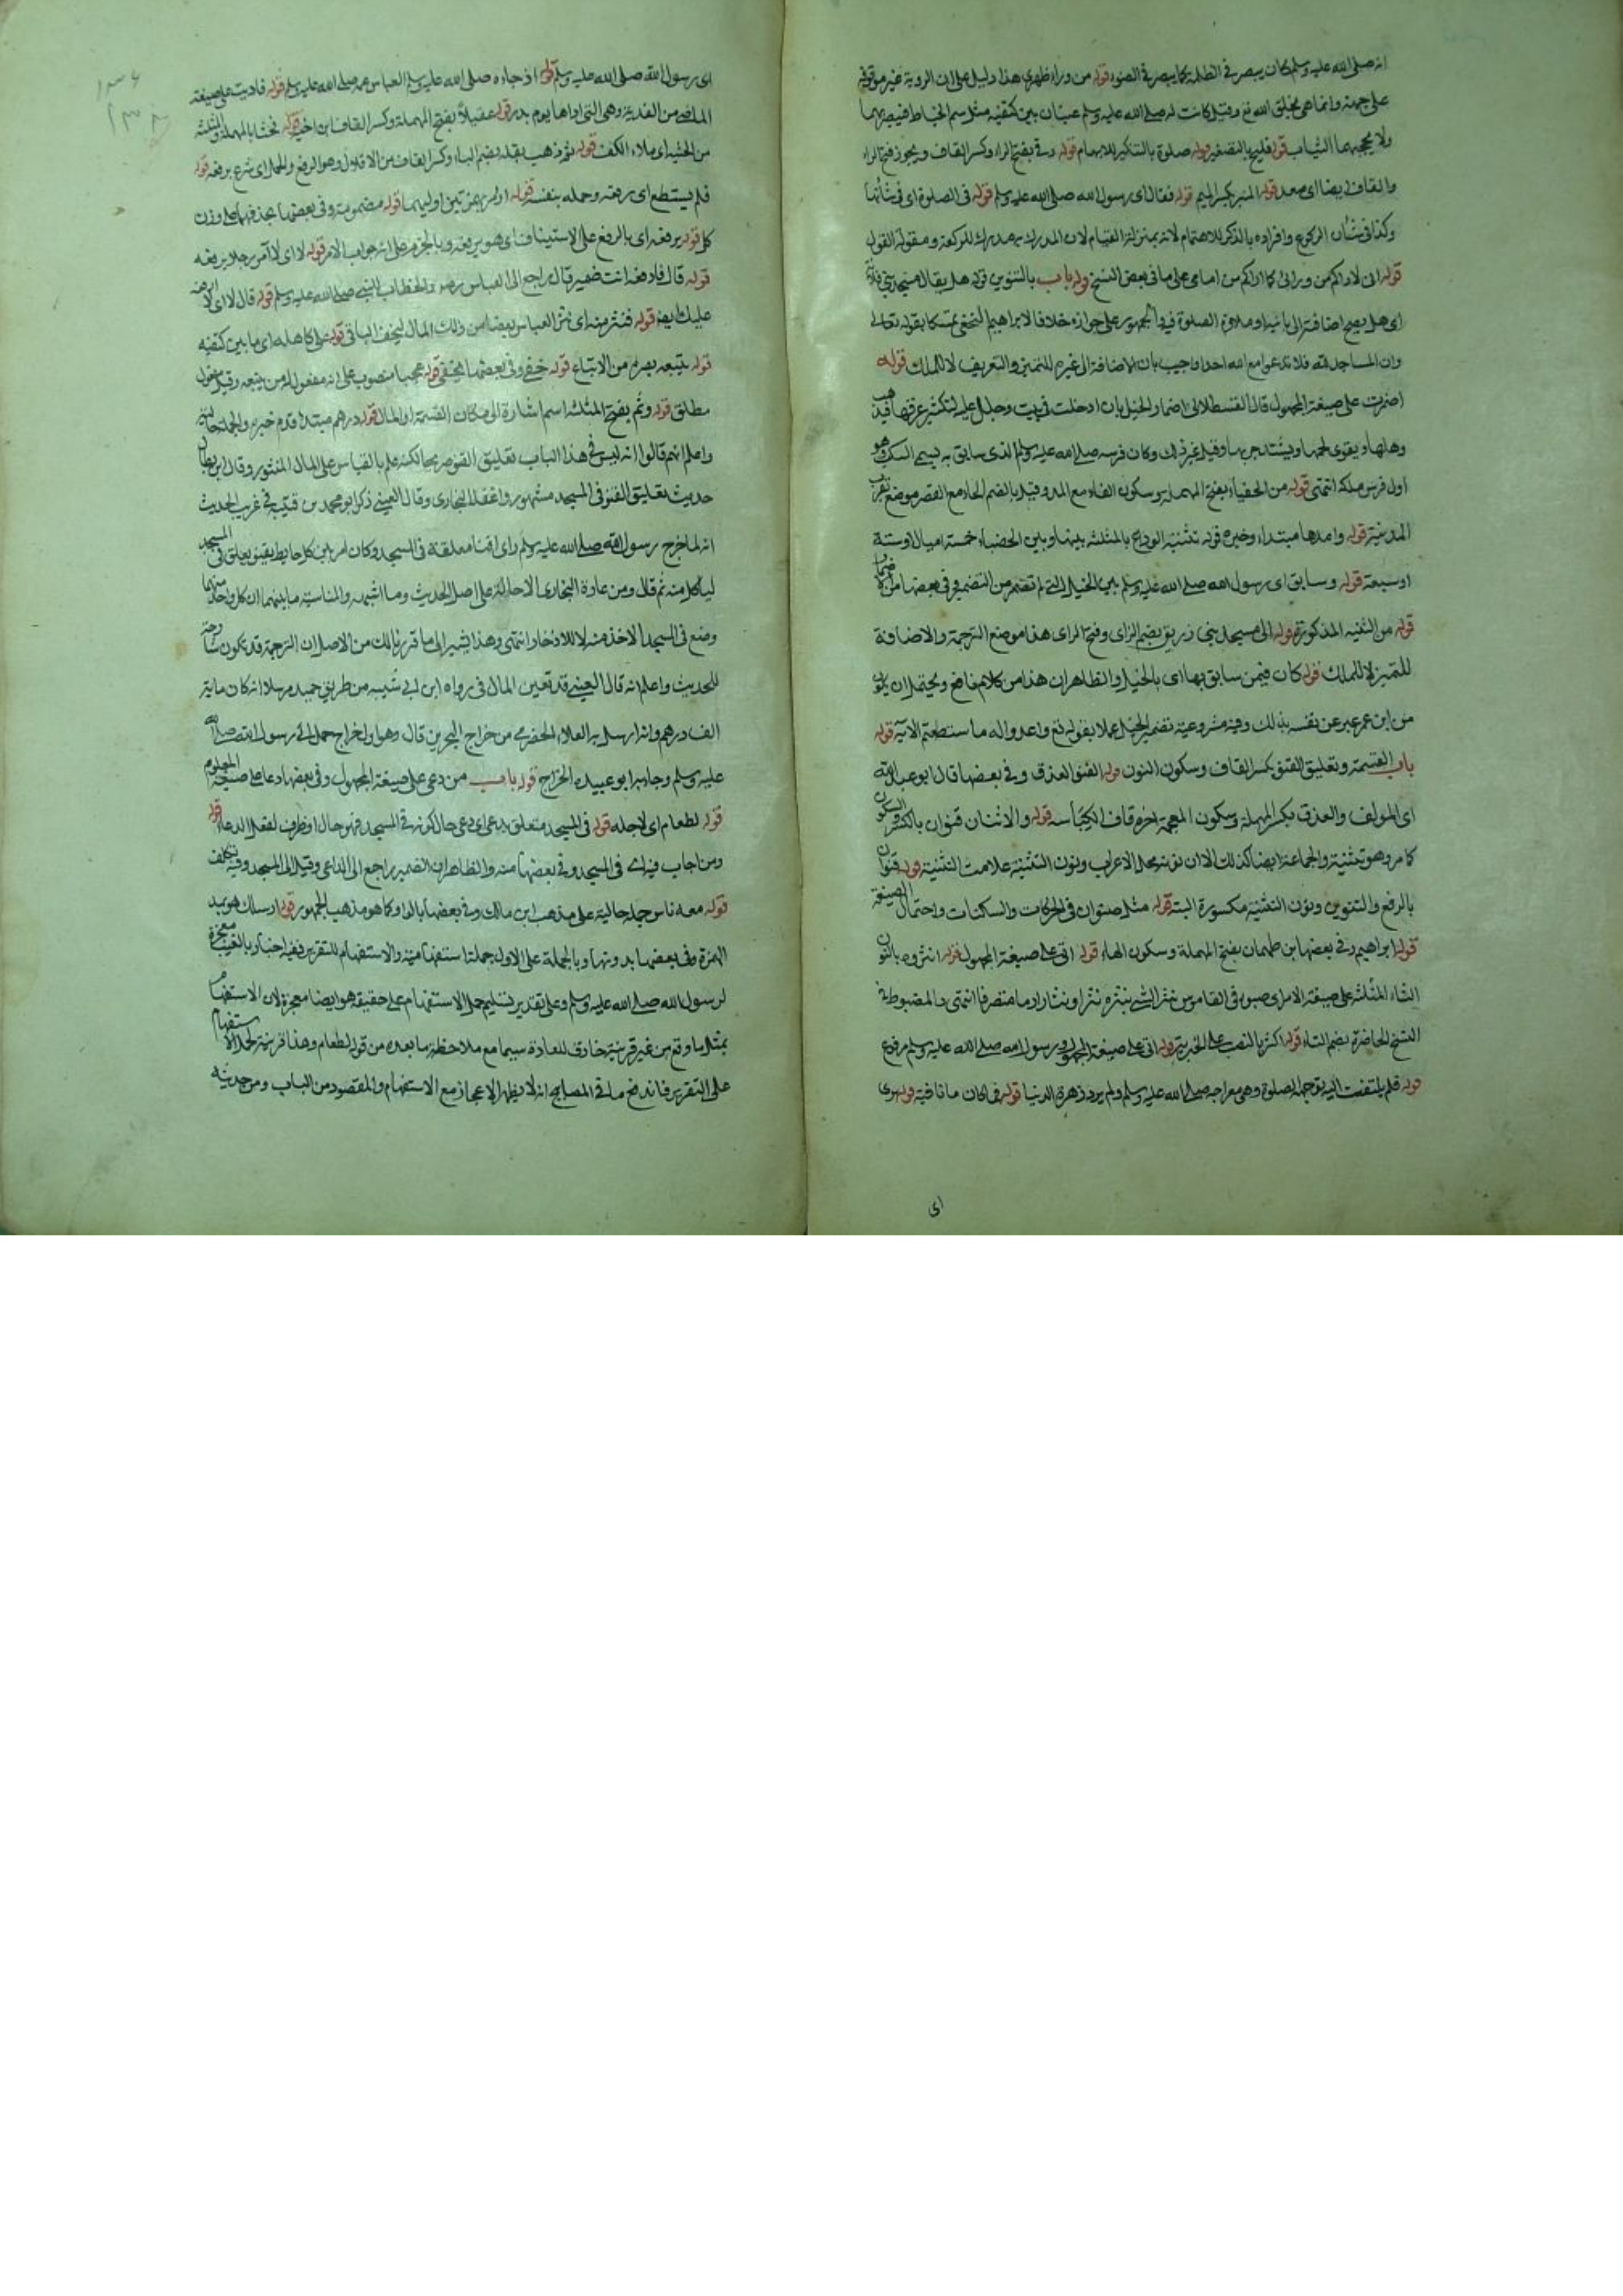 انه صلى الله عليه وسلم كان يبصر في الظلمة كما يبصر في الضوء قوله من وراء ظهري هذا دليل على ان الروية غير موقوفة
على جهة وانما هي بخلق الله تع وقيل كانت له صلى الله عليه وسلم عينان بين كتفيه مثل سم الخياط فيبصر بهما
ولا يحجبهما الثياب قوله فليح بالتصغير قوله صلوة بالتنكير للابهام قوله رقي بفتح الراء وكسر القاف ويجوز فتح الراء
والقاف ايضا اي صعد قوله المنبر بكسر الميم قوله فقال اي رسول الله صلى الله عليه وسلم قوله في الصلوة اي في شأنها
وكذا في شأن الركوع وافراده بالذكر للاهتمام لانه بمنزلة القيام لان المدرك به مدرك للركعة ومقولة القول
قوله اني لاراكم من ورائي كما اراكم من امامي على ما في بعض النسخ قوله باب بالتنوين قوله هل يقال مسجد بني فلان
اي هل يصح اضافته الى بانيه او ملازم الصلوة فيه والجمهور على جوازه خلافا لابراهيم النخعي متمسكا بقوله تعالى
وان المساجد لله فلا تدعوا مع الله احدا واجيب بان الاضافة الى غيره للتمييز والتعريف لا للملك قوله
اضمرت على صيغة المجهول قال القسطلاني اضمار الخيل بان ادخلت في بيت وجلل عليه لتكثر عرقها فيذهب
وهلها ويقوى لحمها ويشتد جريها وقيل غير ذلك وكان فرسه صلى الله عليه وسلم الذي سابق به يسمى السكب وهو
اول فرس ملكه انتهى قوله من الحفياء بفتح المهملة وسكون الفاء مع المد وقيل بالضم الحاء مع القصر موضع بقرب
المدينة قوله وامدها مبتداء وخبره قوله ثنية الوداع بالمثلثة بينها وبين الحفياء خمسة اميال او ستة
او سبعة قوله وسابق اي رسول الله صلى الله عليه وسلم بين الخيل التي لم تضمر من التضمير وفي بعضها من الاضمار
قوله من الثنية المذكورة قوله الى مسجد بني زريق بضم الزاي وفتح الراي هذا موضع الترجمة والاضافة
للتميز لا للملك قوله كان فيمن سابق بها اي بالخيل والظاهر ان هذا من كلام نافع ويحتمل ان يكون
من ابن عمر عبر عن نفسه بذلك وفيه مشروعية تضمير الخيل عملا بقوله تع واعدوا له ما ستطعتم الاية قوله
باب القسمة وتعليق القنو بكسر القاف وسكون النون قوله القنو العذق وفي بعضها قال ابو عبد الله
اي المولف والعذق بكسر المهملة وسكون المعجمة اخره قاف الكباسة قوله والاثنان قنوان بالكسر والسكون
كما مر وهو تثنية والجماعة ايضا كذلك الا ان نونه محل الاعراب ونون التثنية علامت التثنية قوله قنوان
بالرفع والتنوين ونون التثنية مكسورة البتة قوله مثل صنوان في الحركات والسكنات واحتمال الصيغة
قوله ابراهيم وفي بعضها ابن طهمان بفتح المهملة وسكون الهاء قوله اتي على صيغة المجهول قوله انثروه بالنون
الثاء المثلثة على صيغة الامر اي صبوه في القاموس نثر الشي ينثره نثرا ونثارا رماه متفرقا انتهى والمضبوط في
النسخ الحاضرة بضم الثاء قوله اكثر بالنصب على الخبرية قوله اتي على صيغة المجهول ورسول الله صلى الله عليه وسلم مرفوع
قوله فلم يلتفت اليه بتوجهه الصلوة وهي معراجه صلى الله عليه وسلم ولم يرد زهرة الدنيا قوله فما كان ما نافية قوله يرى
اي
١٣٨
اي رسول الله صلى الله عليه وسلم قوله اذ جاءه صلى الله عليه وسلم العباس عمه صلى الله عليه وسلم قوله فاديت على صيغة
الماضي من الفدية وهي التي اداها يوم بدر قوله عقيلاً بفتح المهملة وكسر القاف ابن اخيه قوله فحثا بالمهملة والمثلثة
من الحثية اي ملاء الكف قوله ثم ذهب يقله بضم الياء وكسر القاف من الاقلال وهو الرفع والحمل اي شرع يرفعه قوله
فلم يستطع اي رفعه وحمله بنفسه قوله اومر بهمزتين اوليهما قوله مضمومة وفي بعضها بحذفهما على وزن
كل قوله يرفعه اي بالرفع على الاستيناف اي هو يرفعه وبالجزم على انه جواب الامر قوله لا اي لا آمر رجلا يرفعه
قوله قال فارفعه انت ضمير قال راجع الى العباس رضه والخطاب للنبي صلى الله عليه وسلم قوله قال لا اي لا ارفعه
عليك ايضا قوله فنثر منه اي نثر العباس بعضا من ذلك المال ليخف الباقي قوله على كاهله اي ما بين كتفيه
قوله يتبعه بصره من الاتباع قوله خفي وفي بعضها يختفي قوله عجبا منصوب على انه مفعول له من يتبعه وقيل مفعول
مطلق قوله وثم بفتح المثلثة اسم اشارة الى مكان القسمة او المال قوله درهم مبتداء قدم خبره والجملة حالية
واعلم انهم قالوا انه ليس في هذا الباب تعليق القنو صريحا لكنه علم بالقياس على المال المنثور وقال ابن بطال
حديث تعليق القنو في المسجد مشهور واغفله البخاري وقال العيني ذكر ابو محمد بن قتيبة في غريب الحديث
انه لما خرج رسول الله صلى الله عليه وسلم راى اقناء معلقة في المسجد وكان امر بين كل حايط بقنو يعلق في المسجد
لياكل منه ثم قال ومن عادة البخاري الاحالة على اصل الحديث وما اشبهه والمناسبة ما بينهما ان كل واحد منهما
وضع في المسجد الاخذ منه لا للادخار انتهى وهذا يشير الى ما قررناه لك من الاصل ان الترجمة قد تكون شارحة
للحديث واعلم انه قال العيني قد تعين المال في رواه ابن ابي شيبه من طريق حميد مرسلا انه كان ماية
الف درهم وانه ارسل به العلاء الحضرمي من خراج البحرين قال وهو اول خراج حمل الى رسول الله صلى الله
عليه وسلم وجاء به ابو عبيدة الجراح قوله باب من دعي على صيغة المجهول وفي بعضها دعا على صيغة المعلوم
قوله لطعام اي لاجله قوله في المسجد متعلق بدعي اي دعي حال كونه في المسجد فهو حال او ظرف لفعل الدعاء قوله
ومن اجاب فيه اي في المسجد وفي بعضها منه والظاهر ان الضمير راجع الى الداعي وقيل الى المسجد وفيه تكلف
قوله معه ناس جملة حالية على مذهب ابن مالك وفي بعضها بالواو كما هو مذهب الجمهور قوله ارسلك هو بمد
الهمزة وفي بعضها بدونها وبالجملة على الاول جملة استفهامية والاستفهام للتقرير ففيه اخبار بالغيب معجزة
لرسول الله صلى الله عليه وسلم وعلى تقدير تسليم حمل الاستفهام على حقيقه هو ايضا معجزة لان الاستفهام
بمثل ما وقع من غير قرينة خارق للعادة سيما مع ملاحظة ما بعده من قوله لطعام وهذا قرينة لحمل الاستفهام
على التقرير فاندفع ما في المصابيح انه لا يظهر الاعجاز مع الاستفهام والمقصود من الباب ومن حديثه